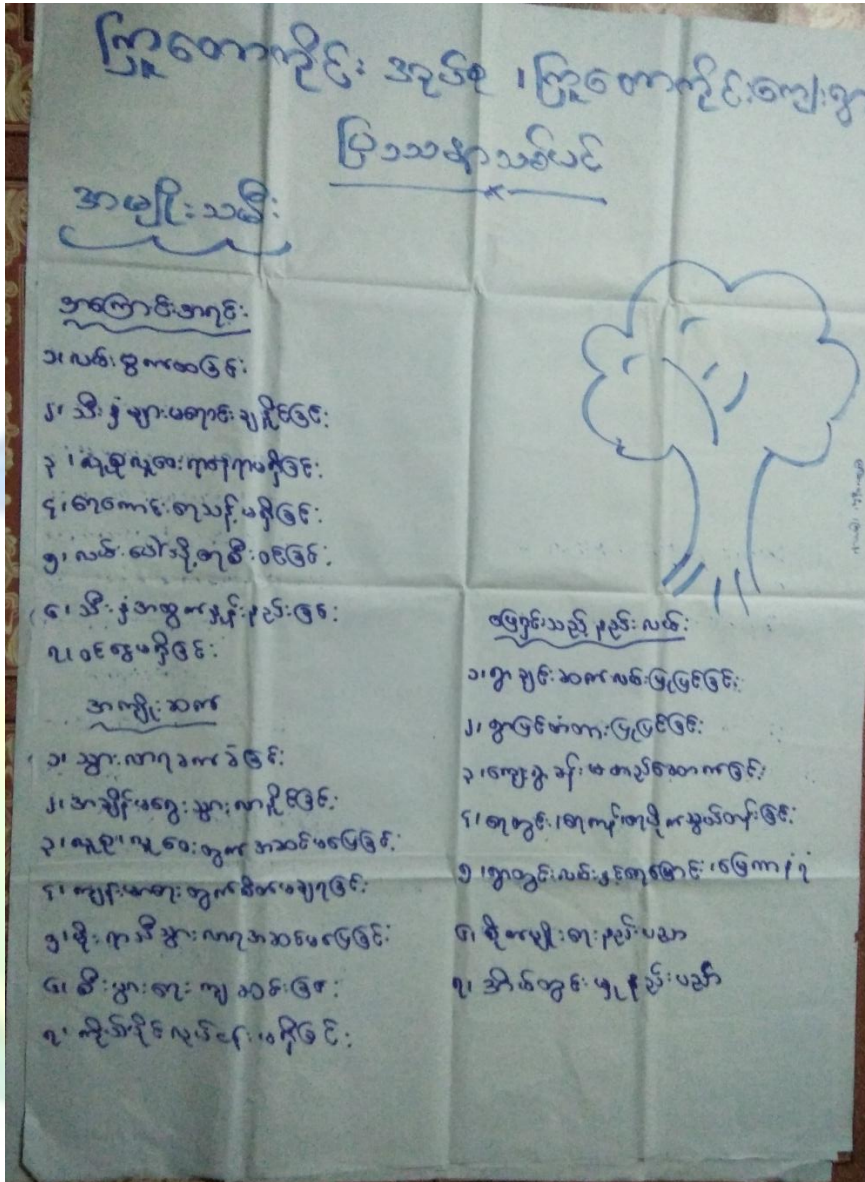 ကြူတောကိုင်း အုပ်စု ၊ ကြူတောကိုင်းကျေးရွာ
ပြဿနာသစ်ပင်
အမျိုးသမီး
အကြောင်းအရင်း
၁၊ လမ်းပွကထခြင်း
၂၊ သီးနှံများမရောင်းချနိုင်ခြင်း
၃၊ လူစုလူဝေးရာနေရာမရှိခြင်း
၄၊ ရေကောင်းရေသန့်မရှိခြင်း
၅၊ လမ်းပေါ်သို့ရေစီးဝင်ခြင်း
၆၊ သီးနှံအထွက်နှုန်းနည်းခြင်း
၇၊ ဝင်ငွေမရှိခြင်း
အကျိုးဆက်
၁၊ သွားလာရခက်ခဲခြင်း
၂၊ အချိန်မရွေးသွားလာနိုင်ခြင်း
၃၊ လူစု၊ လူဝေးတွက်အဆင်မပြေခြင်း
၄၊ ကျန်းမာရေးတွက်စိတ်မချရခြင်း
၅၊ မိုးရာသီသွားလာရအဆင်မပြေခြင်း
၆၊ စီးပွားရေးကျဆင်းခြင်း
၇၊ ကိုယ်ပိုင်လုပ်ငန်းမရှိခြင်း
ဖြေရှင်းသည့်နည်းလမ်း
၁၊ ရွာချင်းဆက်လမ်းပြုပြင်ခြင်း
၂၊ ရွာပြင်တံတားပြုပြင်ခြင်း
၃၊ ကျေးရွာခန်းမတည်ဆောက်ခြင်း
၄၊ ရေတွင်း၊ ရေကန်၊ ရေပိုက်သွယ်တန်းခြင်း
၅၊ ရွာတွင်းလမ်းနှင့်ရေမြောင်း၊ မြေကာနံရံ
၆၊ စိုက်ပျိုးရေးနည်းပညာ
၇၊ အိမ်တွင်းမှုနည်းပညာ